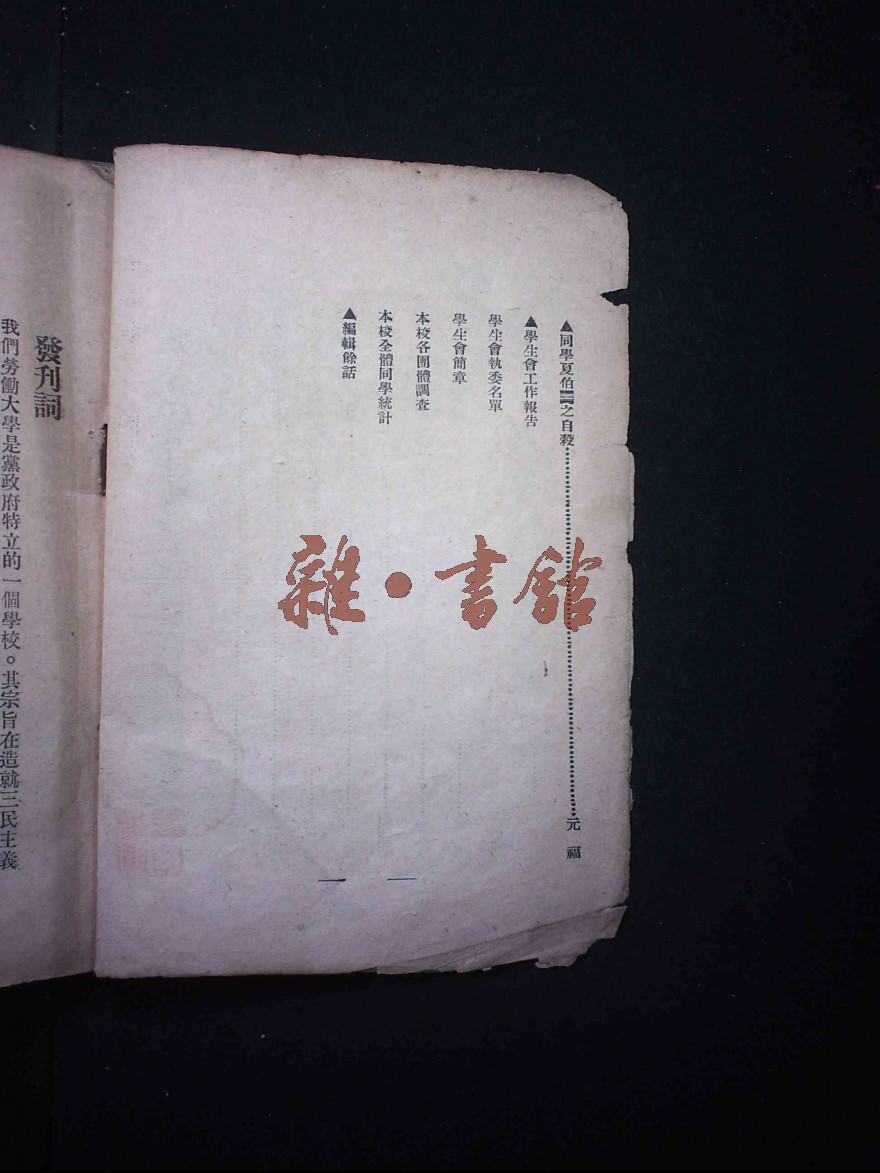 ▲同學夏伯☰之自殺……………………元　福
▲學生會工作報告
學生會執委名單
學生會簡章
本校各團體調查
本校全體同學統計
▲編輯餘話
一　一
雜·書館
發刊詞
我們勞働大學是黨政府特立的一個學校。其宗旨在造就三民主義